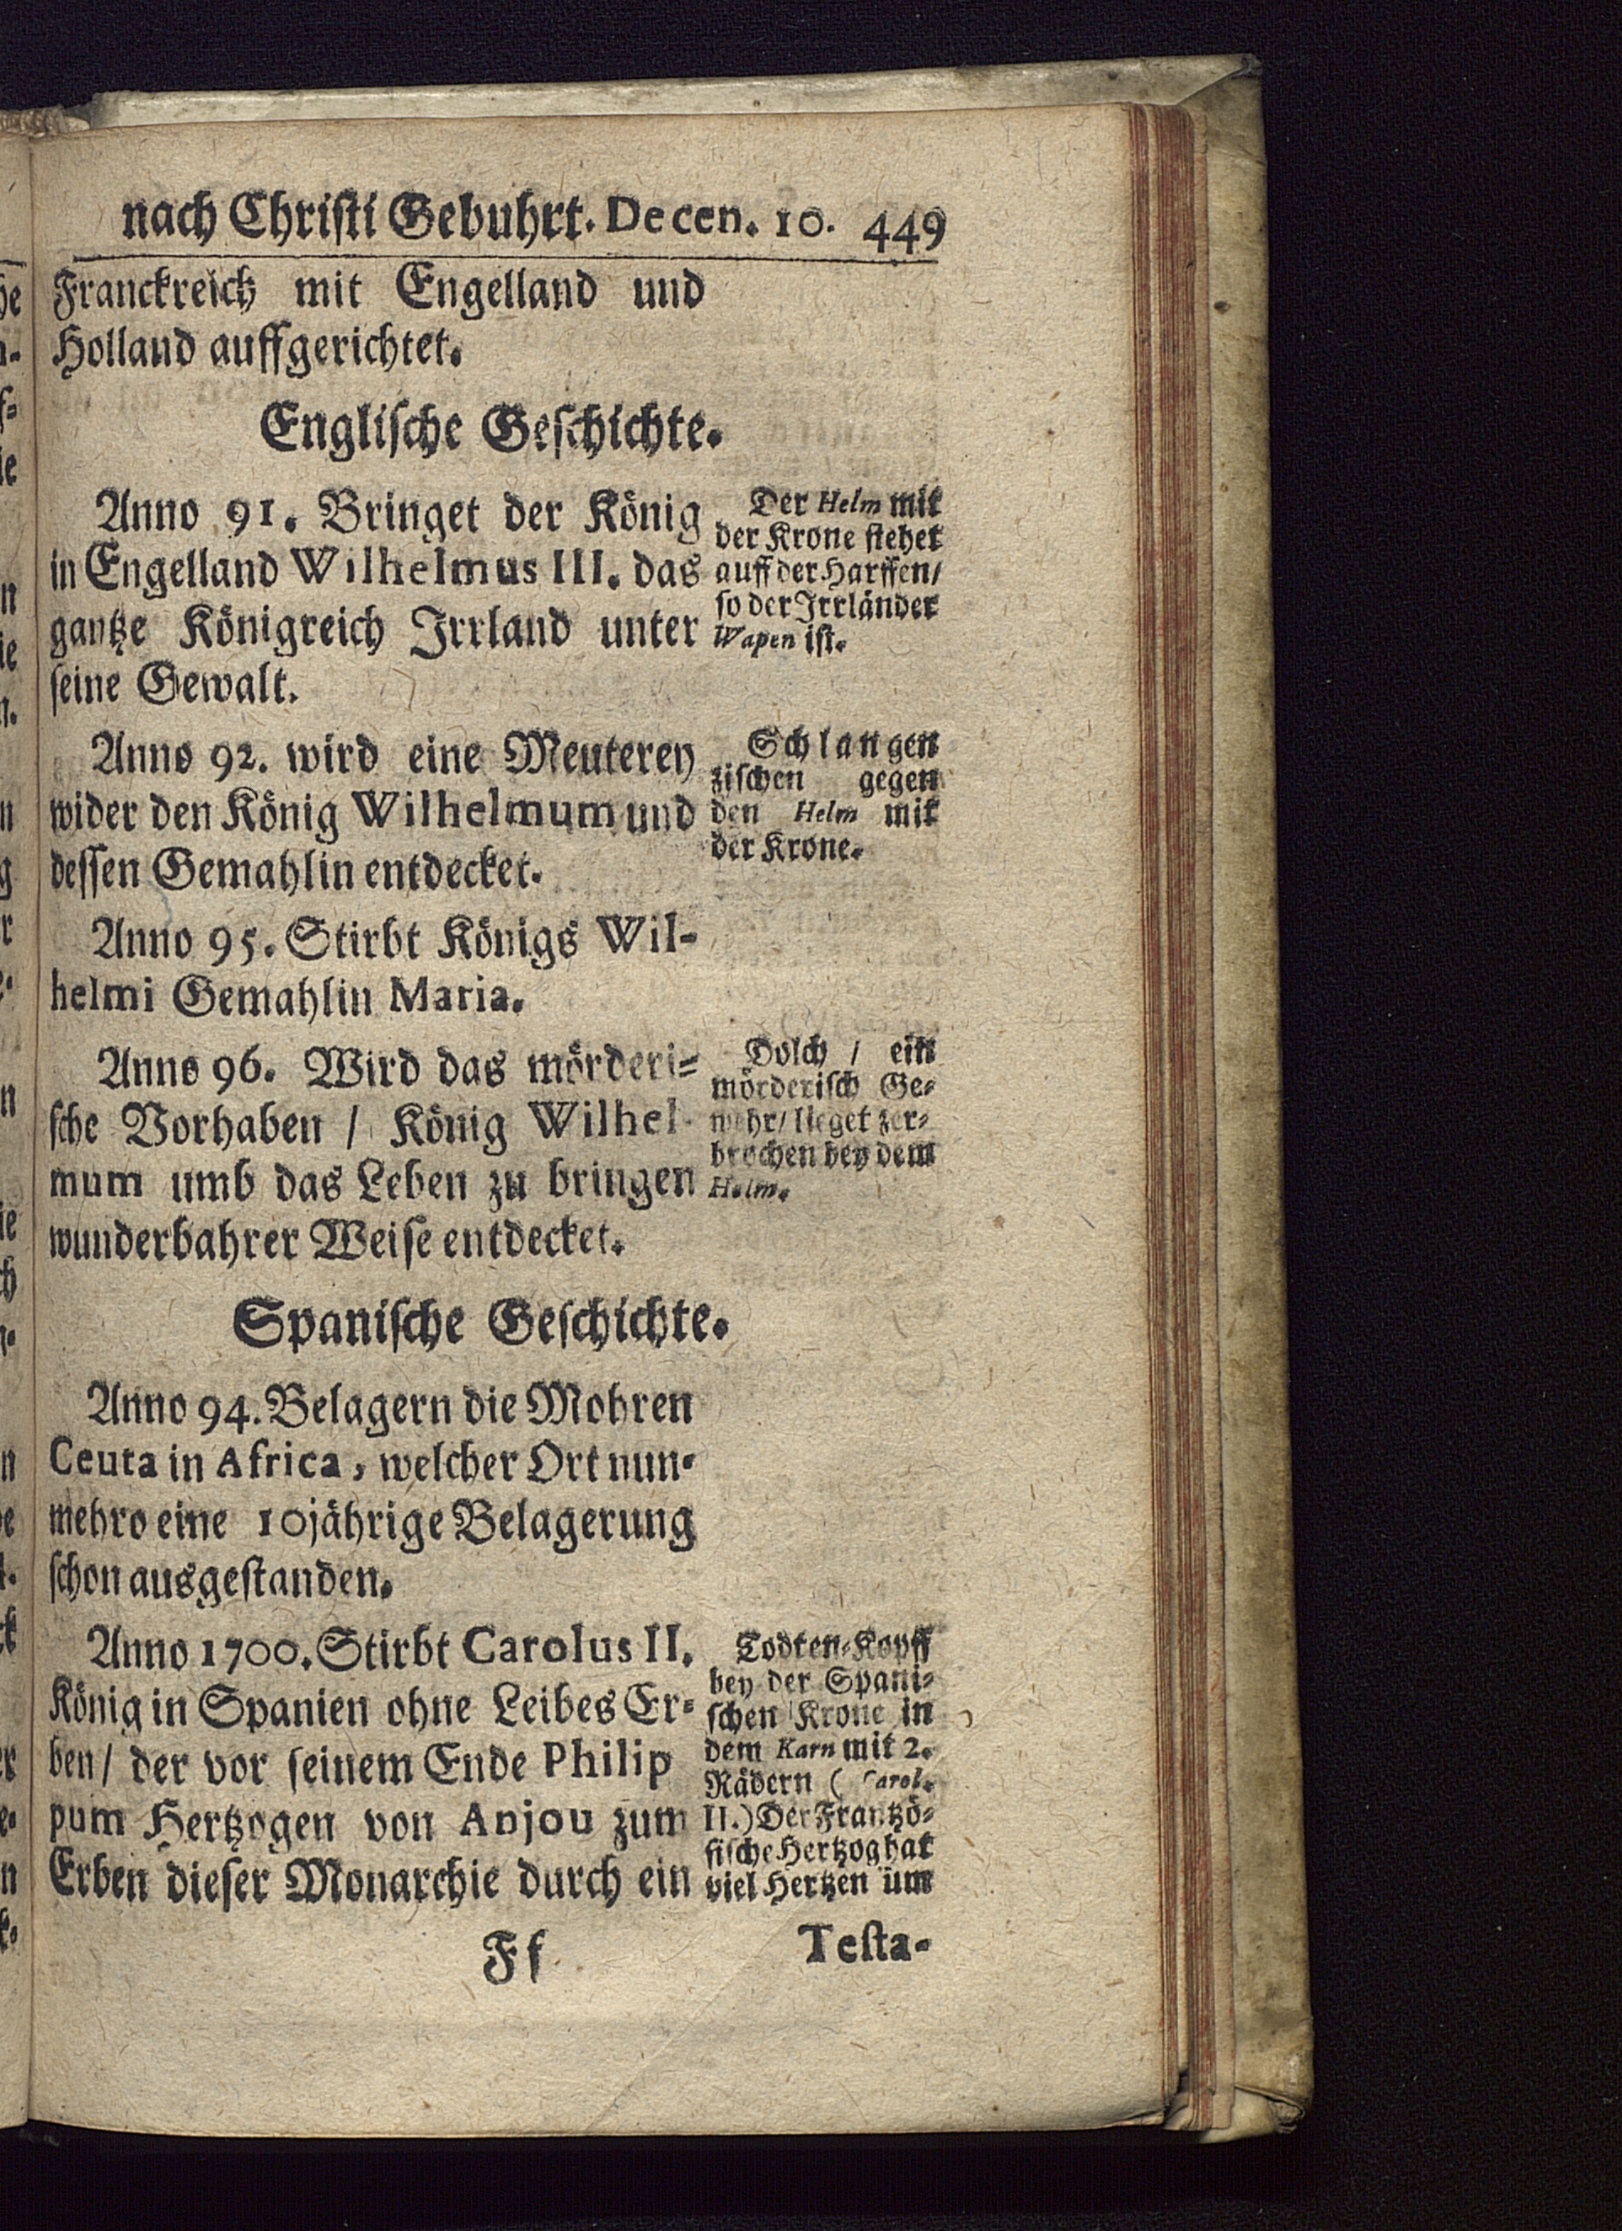 nach Christi Gebuhrt. Decen. 10. 449
Franckreich mit Engelland und
Holland auffgerichtet.
Englische Geschichte.
Anno 91. Bringet der König
in Engelland Wilhelmus III. das
gantze Königreich Irrland unter
seine Gewalt.
Der Helm mit
der Krone stehet
auff der Harffen/
so der Irrländer
Wapen ist.
Anno 92. wird eine Meuterey
wider den König Wilhelmum und
dessen Gemahlin entdecket.
Schlangen
zischen gegen
den Helm mit
der Krone.
Anno 95. Stirbt Königs Wil-
helmi Gemahlin Maria.
Anno 96. Wird das mörderi-
sche Vorhaben / König Wilhel-
mum umb das Leben zu bringen
wunderbahrer Weise entdecket.
Dolch / ein
mörderisch Ge-
wehr/ lieget zer-
brochen bey dem
Helm.
Spanische Geschichte.
Anno 94. Belagern die Mohren
Ceuta in Africa, welcher Ort nun-
mehro eine 10jährige Belagerung
schon ausgestanden.
Anno 1700. Stirbt Carolus II.
König in Spanien ohne Leibes Er-
ben/ der vor seinem Ende Philip
pum Hertzogen von Anjou zum
Erben dieser Monarchie durch ein
Todten-Kopff
bey der Spani-
schen Krone in
dem Karn mit 2.
Rädern (Carol.
II.) Der Frantzö-
sische Hertzog hat
viel Hertzen üm
Ff Testa-